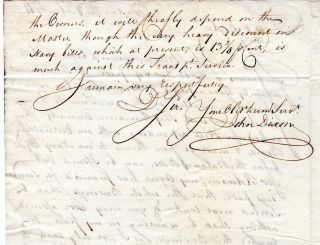 the Owners, it will cheafly depend on the
Master though the very heavy Discount on
Navy bills, which at present, is 13 ⅞ pCent, is
much against this Transpt. Service
I remain, very respectfully,
Sir, Your Ob. Humb. Servt.
John Dixon